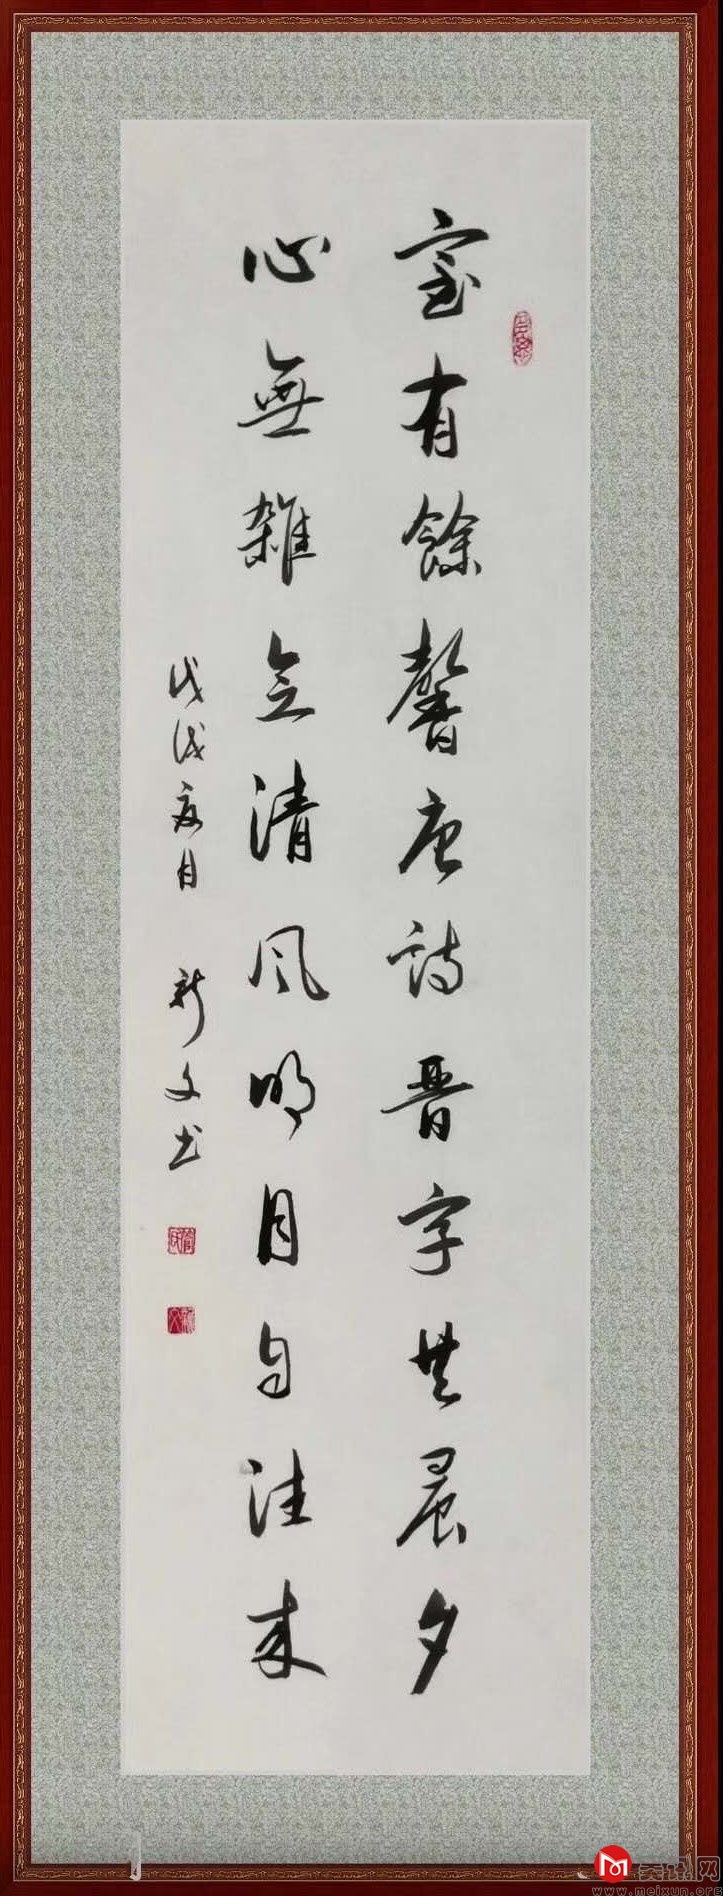 室有餘馨唐詩晋字共晨夕
心無雜念清風明月自往来
戊戌夏月 新文书
美讯网
www.meixun.org